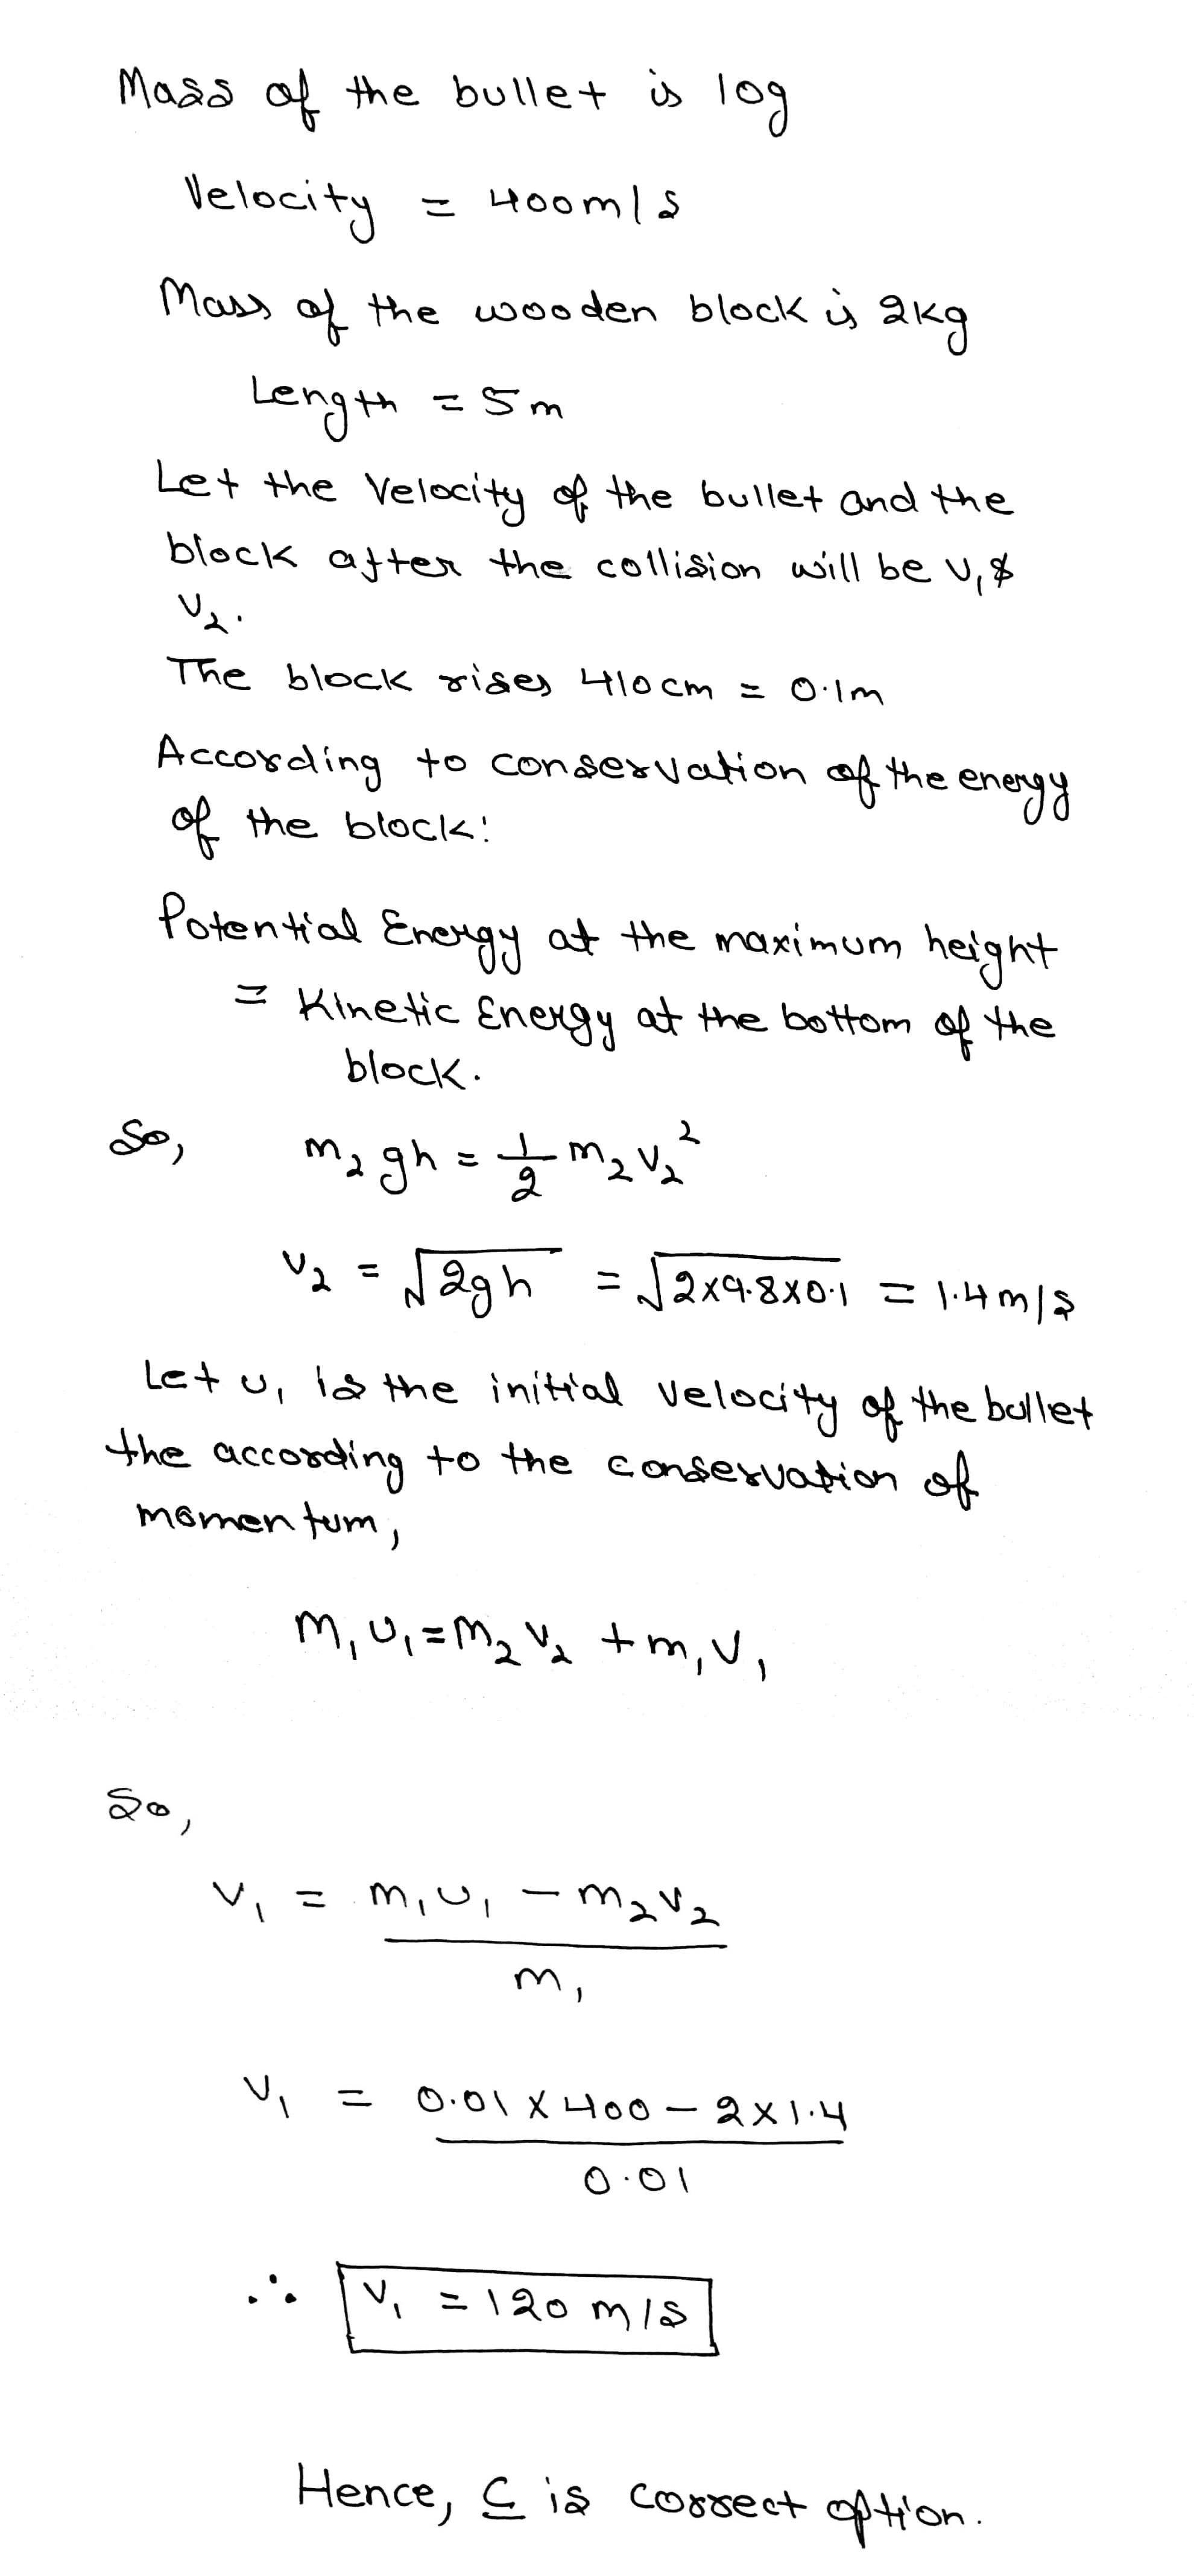 Mass of the bullet is 10g
Velocity = 400m/s
Mass of the wooden block is 2kg
Length = 5m
Let the Velocity of the bullet and the
block after the collision will be v₁ &
v₂.
The block rises 410cm = 0.1m
According to conservation of the energy
of the block:
Potential Energy at the maximum height
= Kinetic Energy at the bottom of the
block.
So, m₂gh = 1/2 m₂v₂²
v₂ = √2gh = √2×9.8×0.1 = 1.4m/s
Let u₁ is the initial velocity of the bullet
the according to the conservation of
momentum,
m₁u₁ = m₂v₂ + m₁v₁
So,
v₁ = m₁u₁ - m₂v₂
m₁
v₁ = 0.01×400 - 2×1.4
0.01
∴ v₁ = 120 m/s
Hence, C is correct option.